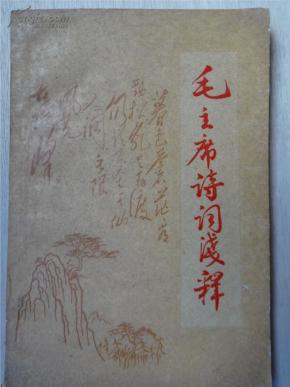 毛主席诗词淺释
暮色蒼茫看
劲松乱云飞渡
仍从容天生一个仙
人洞无限
风光
在险峰